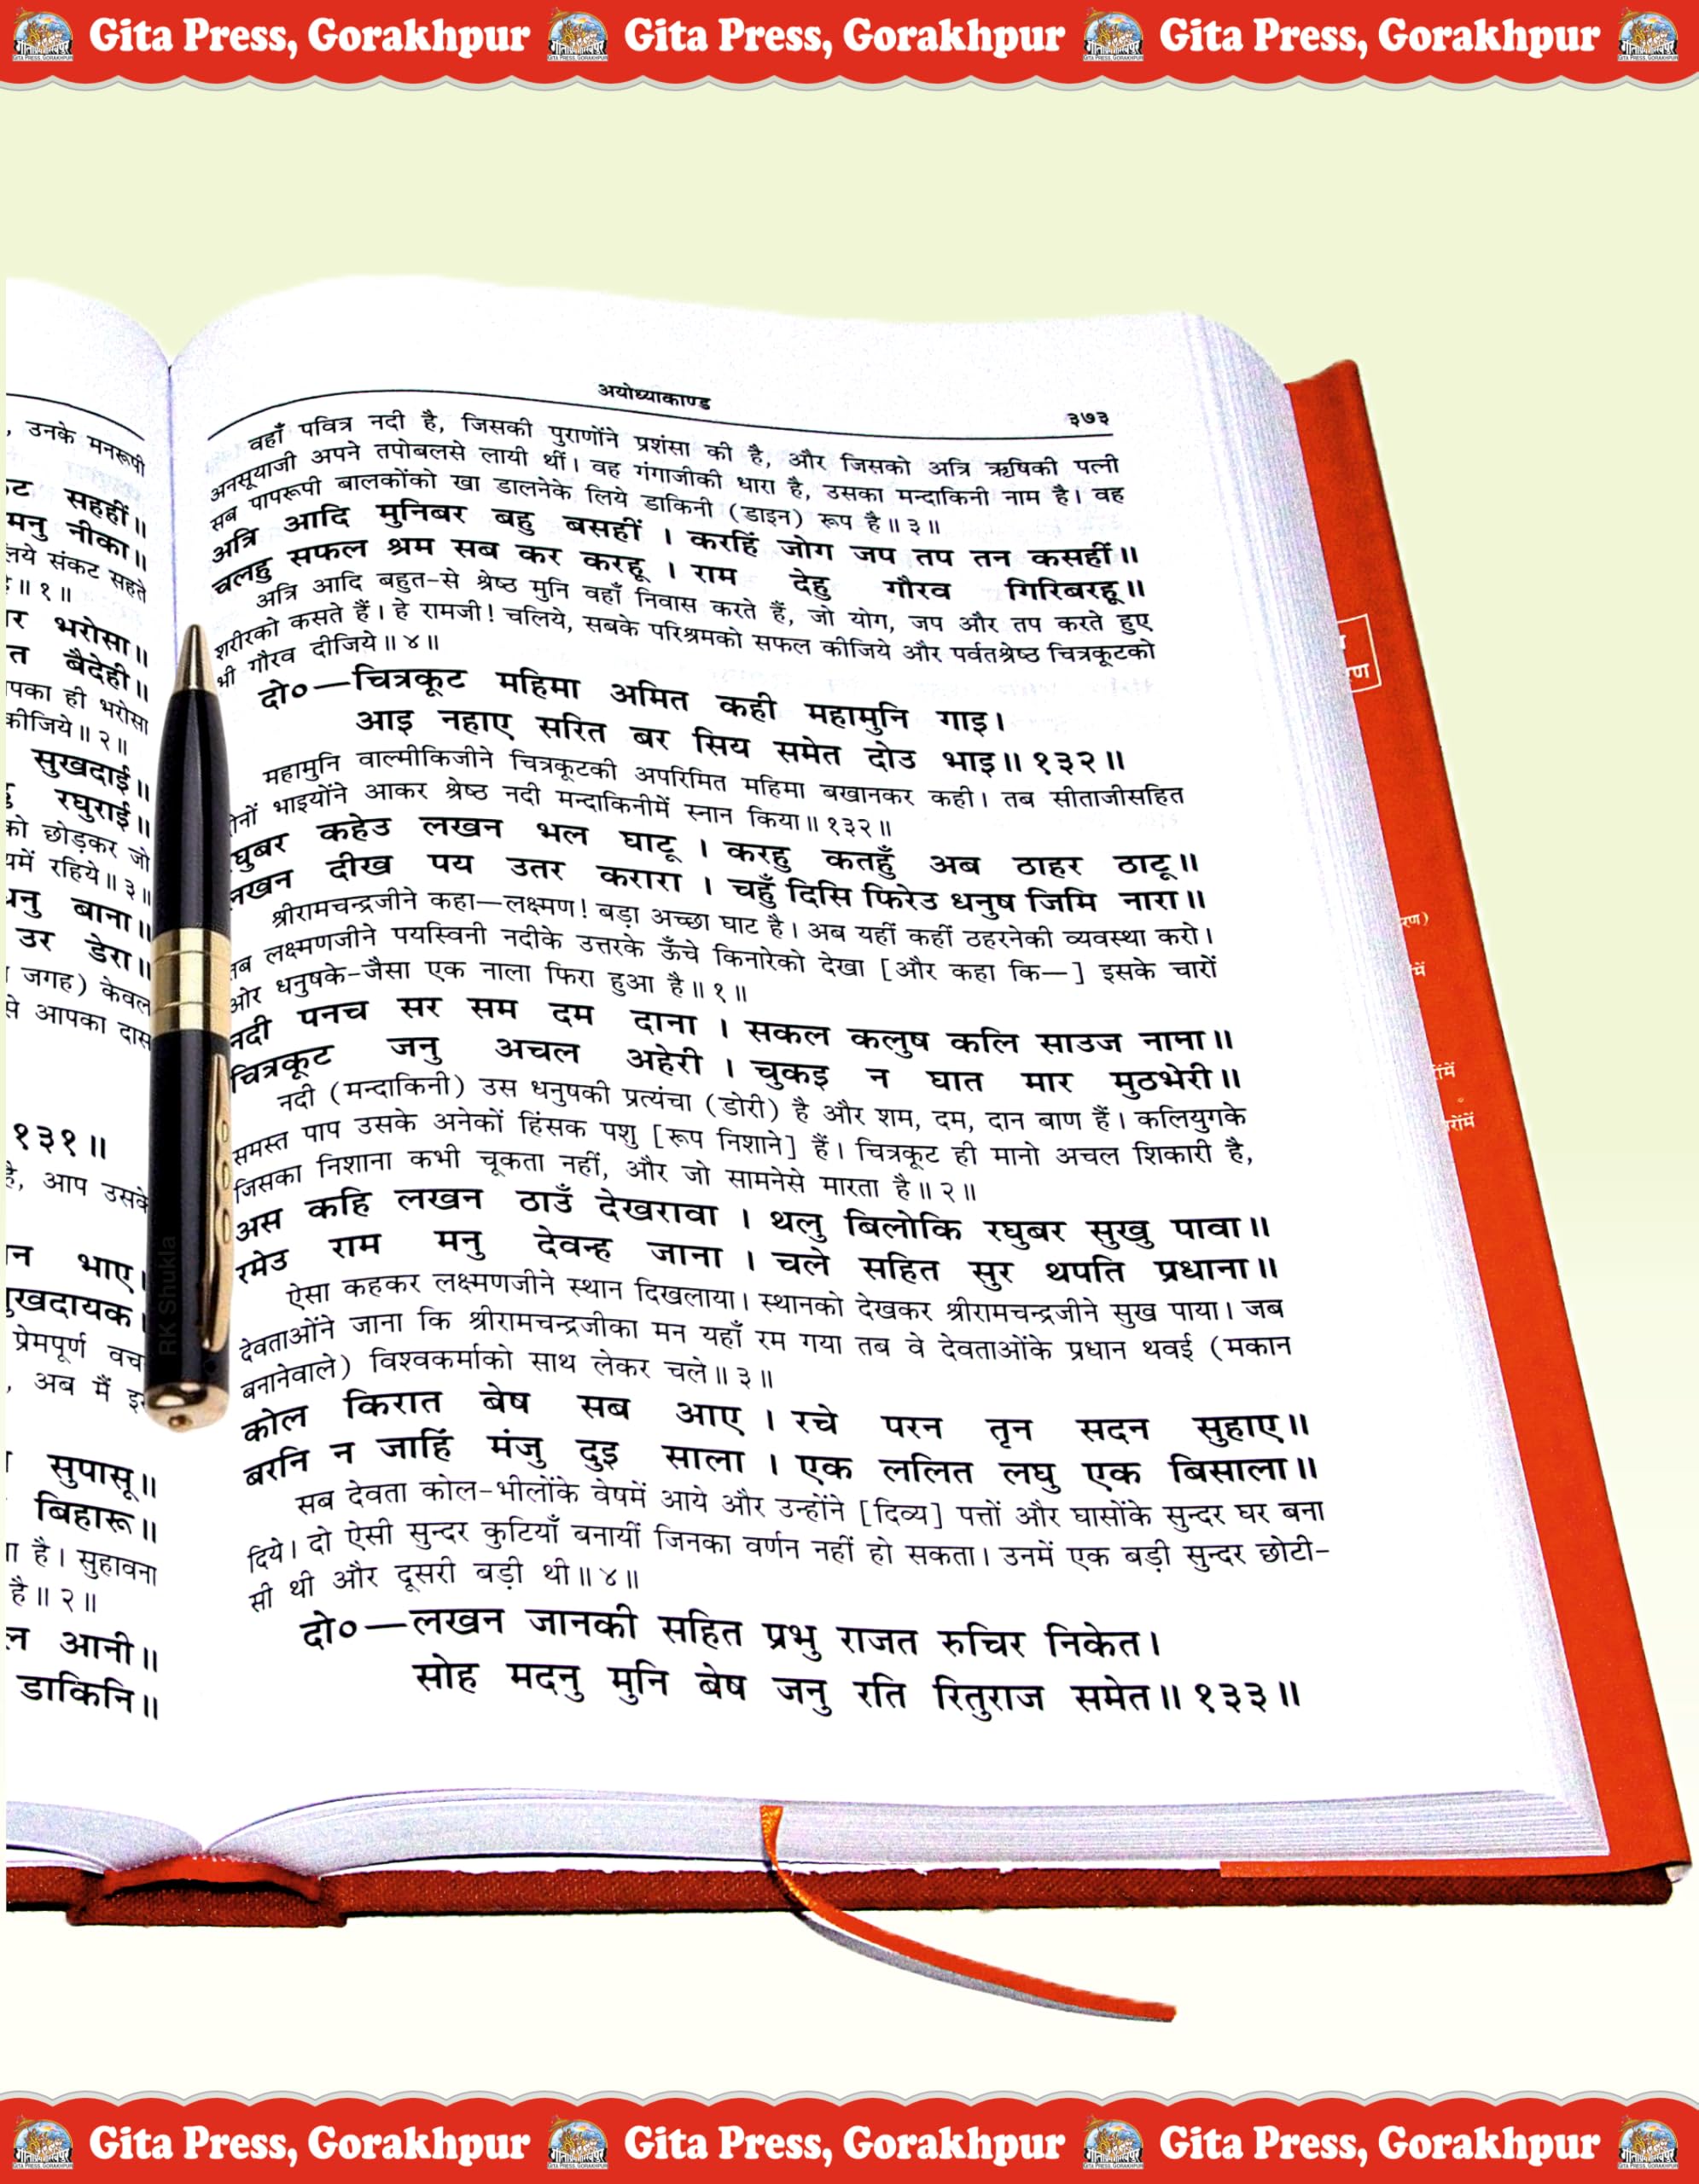 Gita Press, Gorakhpur Gita Press, Gorakhpur Gita Press, Gorakhpur
, उनके मनरूपी
सहहीं॥
मनु नीका॥
लिये संकट सहते
॥१॥
भरोसा॥
त बैदेही॥
पका ही भरोसा
कीजिये॥२॥
सुखदाई॥
रघुराई॥
को छोड़कर जो
यमें रहिये॥३॥
धनु बाना॥
उर डेरा॥
जगह) केवल
से आपका दास
१३१॥
है, आप उसके
न भाए।
सुखदायक।
प्रेमपूर्ण वच
, अब मैं इस
सुपासू॥
बिहारू॥
है। सुहावना
है॥२॥
ल आनी॥
डाकिनि॥
अयोध्याकाण्ड
३७३
वहाँ पवित्र नदी है, जिसकी पुराणोंने प्रशंसा की है, और जिसको अत्रि ऋषिकी पत्नी
अनसूयाजी अपने तपोबलसे लायी थीं। वह गंगाजीकी धारा है, उसका मन्दाकिनी नाम है। वह
सब पापरूपी बालकोंको खा डालनेके लिये डाकिनी (डाइन) रूप है॥३॥
अत्रि आदि मुनिबर बहु बसहीं । करहिं जोग जप तप तन कसहीं॥
चलहु सफल श्रम सब कर करहू । राम देहु गौरव गिरिबरहू॥
अत्रि आदि बहुत-से श्रेष्ठ मुनि वहाँ निवास करते हैं, जो योग, जप और तप करते हुए
शरीरको कसते हैं। हे रामजी! चलिये, सबके परिश्रमको सफल कीजिये और पर्वतश्रेष्ठ चित्रकूटको
भी गौरव दीजिये॥४॥
दो०—चित्रकूट महिमा अमित कही महामुनि गाइ।
आइ नहाए सरित बर सिय समेत दोउ भाइ॥१३२॥
महामुनि वाल्मीकिजीने चित्रकूटकी अपरिमित महिमा बखानकर कही। तब सीताजीसहित
दोनों भाइयोंने आकर श्रेष्ठ नदी मन्दाकिनीमें स्नान किया॥१३२॥
रघुबर कहेउ लखन भल घाटू । करहु कतहुँ अब ठाहर ठाटू॥
लखन दीख पय उतर करारा । चहुँ दिसि फिरेउ धनुष जिमि नारा॥
श्रीरामचन्द्रजीने कहा—लक्ष्मण! बड़ा अच्छा घाट है। अब यहीं कहीं ठहरनेकी व्यवस्था करो।
तब लक्ष्मणजीने पयस्विनी नदीके उत्तरके ऊँचे किनारेको देखा [और कहा कि—] इसके चारों
ओर धनुषके-जैसा एक नाला फिरा हुआ है॥१॥
नदी पनच सर सम दम दाना । सकल कलुष कलि साउज नाना॥
चित्रकूट जनु अचल अहेरी । चुकइ न घात मार मुठभेरी॥
नदी (मन्दाकिनी) उस धनुषकी प्रत्यंचा (डोरी) है और शम, दम, दान बाण हैं। कलियुगके
समस्त पाप उसके अनेकों हिंसक पशु [रूप निशाने] हैं। चित्रकूट ही मानो अचल शिकारी है,
जिसका निशाना कभी चूकता नहीं, और जो सामनेसे मारता है॥२॥
अस कहि लखन ठाउँ देखरावा । थलु बिलोकि रघुबर सुखु पावा॥
रमेउ राम मनु देवन्ह जाना । चले सहित सुर थपति प्रधाना॥
ऐसा कहकर लक्ष्मणजीने स्थान दिखलाया। स्थानको देखकर श्रीरामचन्द्रजीने सुख पाया। जब
देवताओंने जाना कि श्रीरामचन्द्रजीका मन यहाँ रम गया तब वे देवताओंके प्रधान थवई (मकान
बनानेवाले) विश्वकर्माको साथ लेकर चले॥३॥
कोल किरात बेष सब आए । रचे परन तृन सदन सुहाए॥
बरनि न जाहिं मंजु दुइ साला । एक ललित लघु एक बिसाला॥
सब देवता कोल-भीलोंके वेषमें आये और उन्होंने [दिव्य] पत्तों और घासोंके सुन्दर घर बना
दिये। दो ऐसी सुन्दर कुटियाँ बनायीं जिनका वर्णन नहीं हो सकता। उनमें एक बड़ी सुन्दर छोटी-
सी थी और दूसरी बड़ी थी॥४॥
दो०—लखन जानकी सहित प्रभु राजत रुचिर निकेत।
सोह मदनु मुनि बेष जनु रति रितुराज समेत॥१३३॥
RK Shukla
Gita Press, Gorakhpur Gita Press, Gorakhpur Gita Press, Gorakhpur